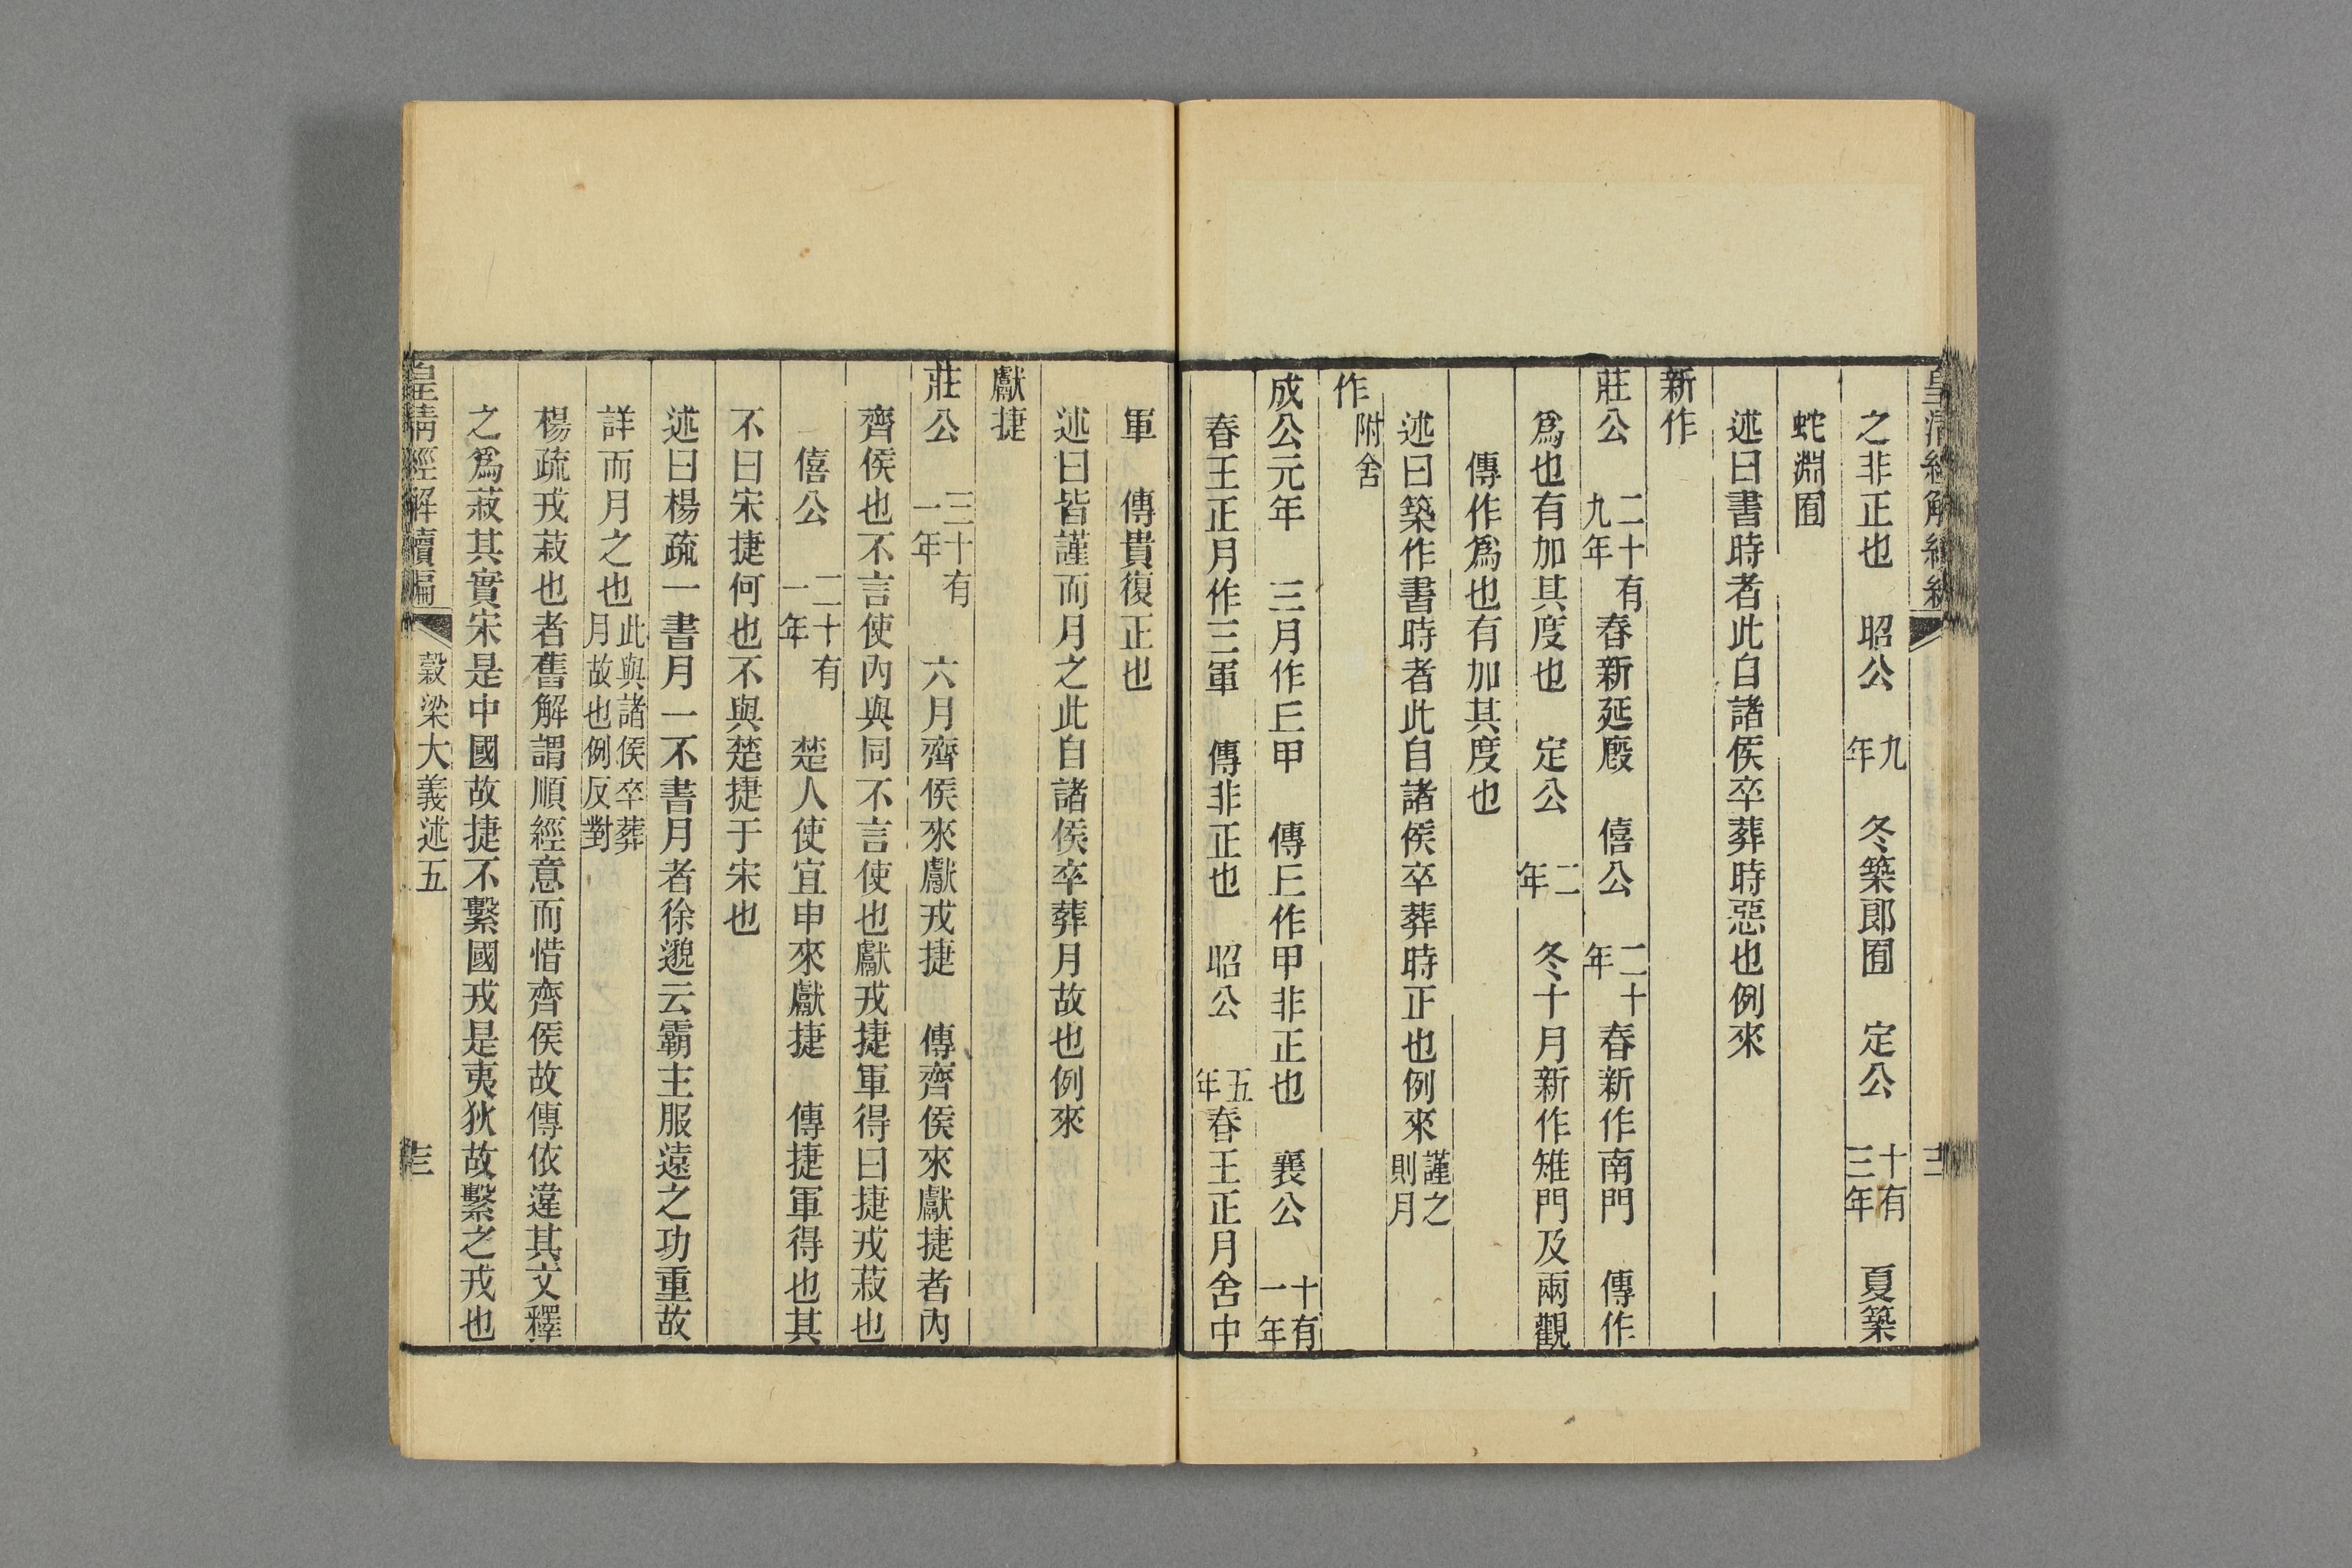 之非正也　昭公　九年　冬築郎囿　定公　十有三年　夏築
蛇淵囿
述曰書時者此自諸侯卒葬時惡也例來
新作
莊公　二十有九年　春新延廄　僖公　二十年　春新作南門　傳作
爲也有加其度也　定公　二年　冬十月新作雉門及兩觀
傳作爲也有加其度也
述曰築作書時者此自諸侯卒葬時正也例來謹之則月
作附舍
成公元年　三月作𠀌甲　傳𠀌作甲非正也　襄公　十有一年
春王正月作三軍　傳非正也　昭公　五年　春王正月舍中
軍　傳貴復正也
述曰皆謹而月之此自諸侯卒葬月故也例來
獻捷
莊公　三十有一年　六月齊侯來獻戎捷　傳齊侯來獻捷者內
齊侯也不言使內與同不言使也獻戎捷軍得曰捷戎菽也
僖公　二十有一年　楚人使宜申來獻捷　傳捷軍得也其
不曰宋捷何也不與楚捷于宋也
述曰楊疏一書月一不書月者徐邈云霸主服遠之功重故
詳而月之也此與諸侯卒葬月故也例反對
楊疏戎菽也者舊解謂順經意而惜齊侯故傳依違其文釋
之爲菽其實宋是中國故捷不繫國戎是夷狄故繫之戎也
皇清經解續編　穀梁大義述五